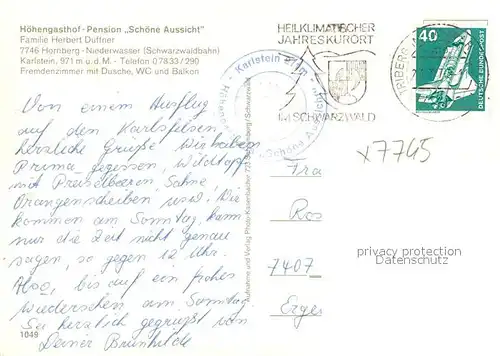 Höhengasthof - Pension „Schöne Aussicht"
Familie Herbert Duffner
7746 Hornberg - Niederwasser (Schwarzwaldbahn)
Karlstein, 971 m u.d.M. - Telefon 07833/290
Fremdenzimmer mit Dusche, WC und Balkon
HEILKLIMATISCHER
JAHRESKURORT
IM SCHWARZWALD
TRIBERG
40
DEUTSCHE BUNDESPOST
Karlstein
„Schöne Aussicht"
Von einem Ausflug
auf den Karlsfelsen
herzliche Grüße. Wir haben
Prima gegessen, Wildtopf
mit Preiselbeeren, Sahne,
Orangenscheiben usw. Wir
kommen am Sonntag, kann
nur die Zeit nicht genau
sagen, so gegen 12 Uhr.
Also, bis auf ein frohes
Wiedersehen am Sonntag.
Sei herzlich gegrüßt von
Deiner Brunhilde
1049
Aufnahme und Verlag Photo-Kasenbacher
Hornberg/Schwarzwald
x7745
Fra
Ros
7407
Erge
privacy protection
Datenschutz